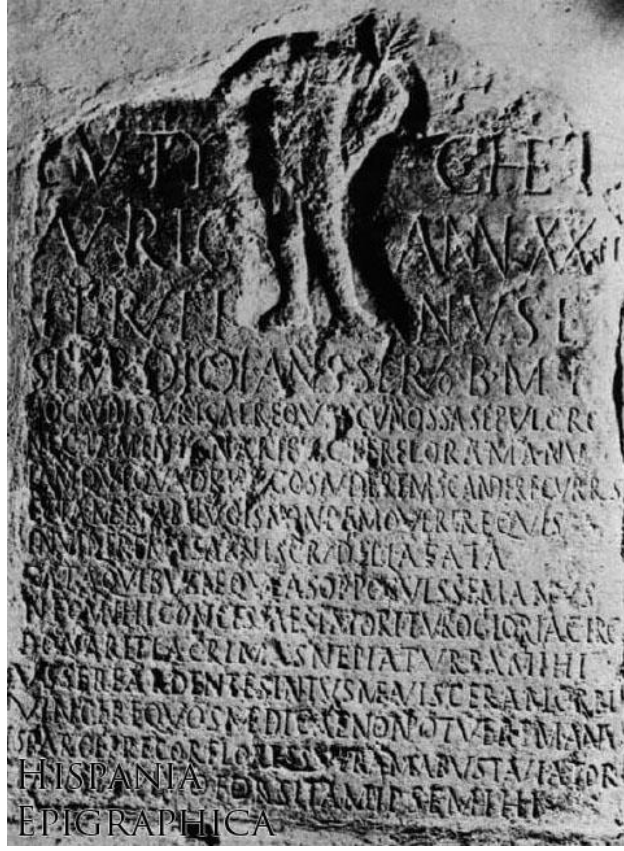 EVTY CHETI
AVRIG ANN·XXII
FL·RVFI NVS·E
SEMP·DIOFANIS·SER·B·M·F
HOC RVDIS AVRIGAE REQVIESCVNT OSSA SEPVLCRO
NEC TAMEN IGNARI FLECTERE LORA MANV
IAM QVI QVADRIIVGOS AVDEREM SCANDERE CVRRVS
ET TAMEN A BIIVGIS NON REMOVERER EQVIS
INVIDERE MEIS ANNIS CRVDELIA FATA
FATA QVIBVS NEQVEAS OPPOSVISSE MANVS
NEC MIHI CONCESSA EST MORITVRO GLORIA CIRCI
DONARET LACRIMAS NE PIA TVRBA MIHI
VSSERE ARDENTES INTVS MEA VISCERA MORBI
VINCERE QVOS MEDICAE NON POTVERE MANVS
SPARGE PRECOR FLORES SVPRA MEA BVSTA VIATOR
FORSITAM IPSE MIHI
HISPANIA
EPIGRAPHICA